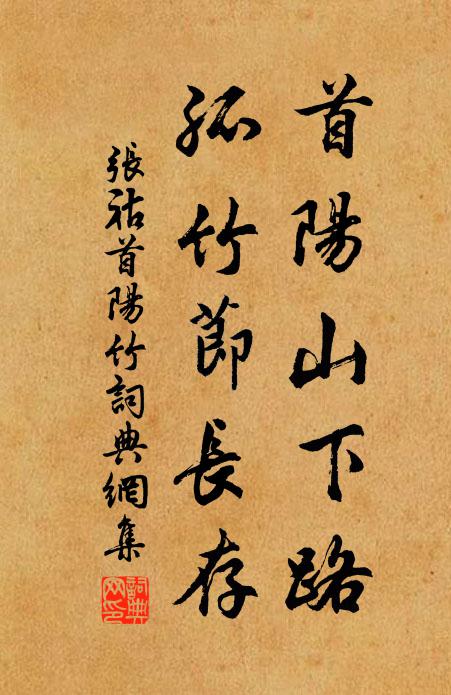 首陽山下路
孤竹節長存
張祜首陽竹詞典網集
詞典網印